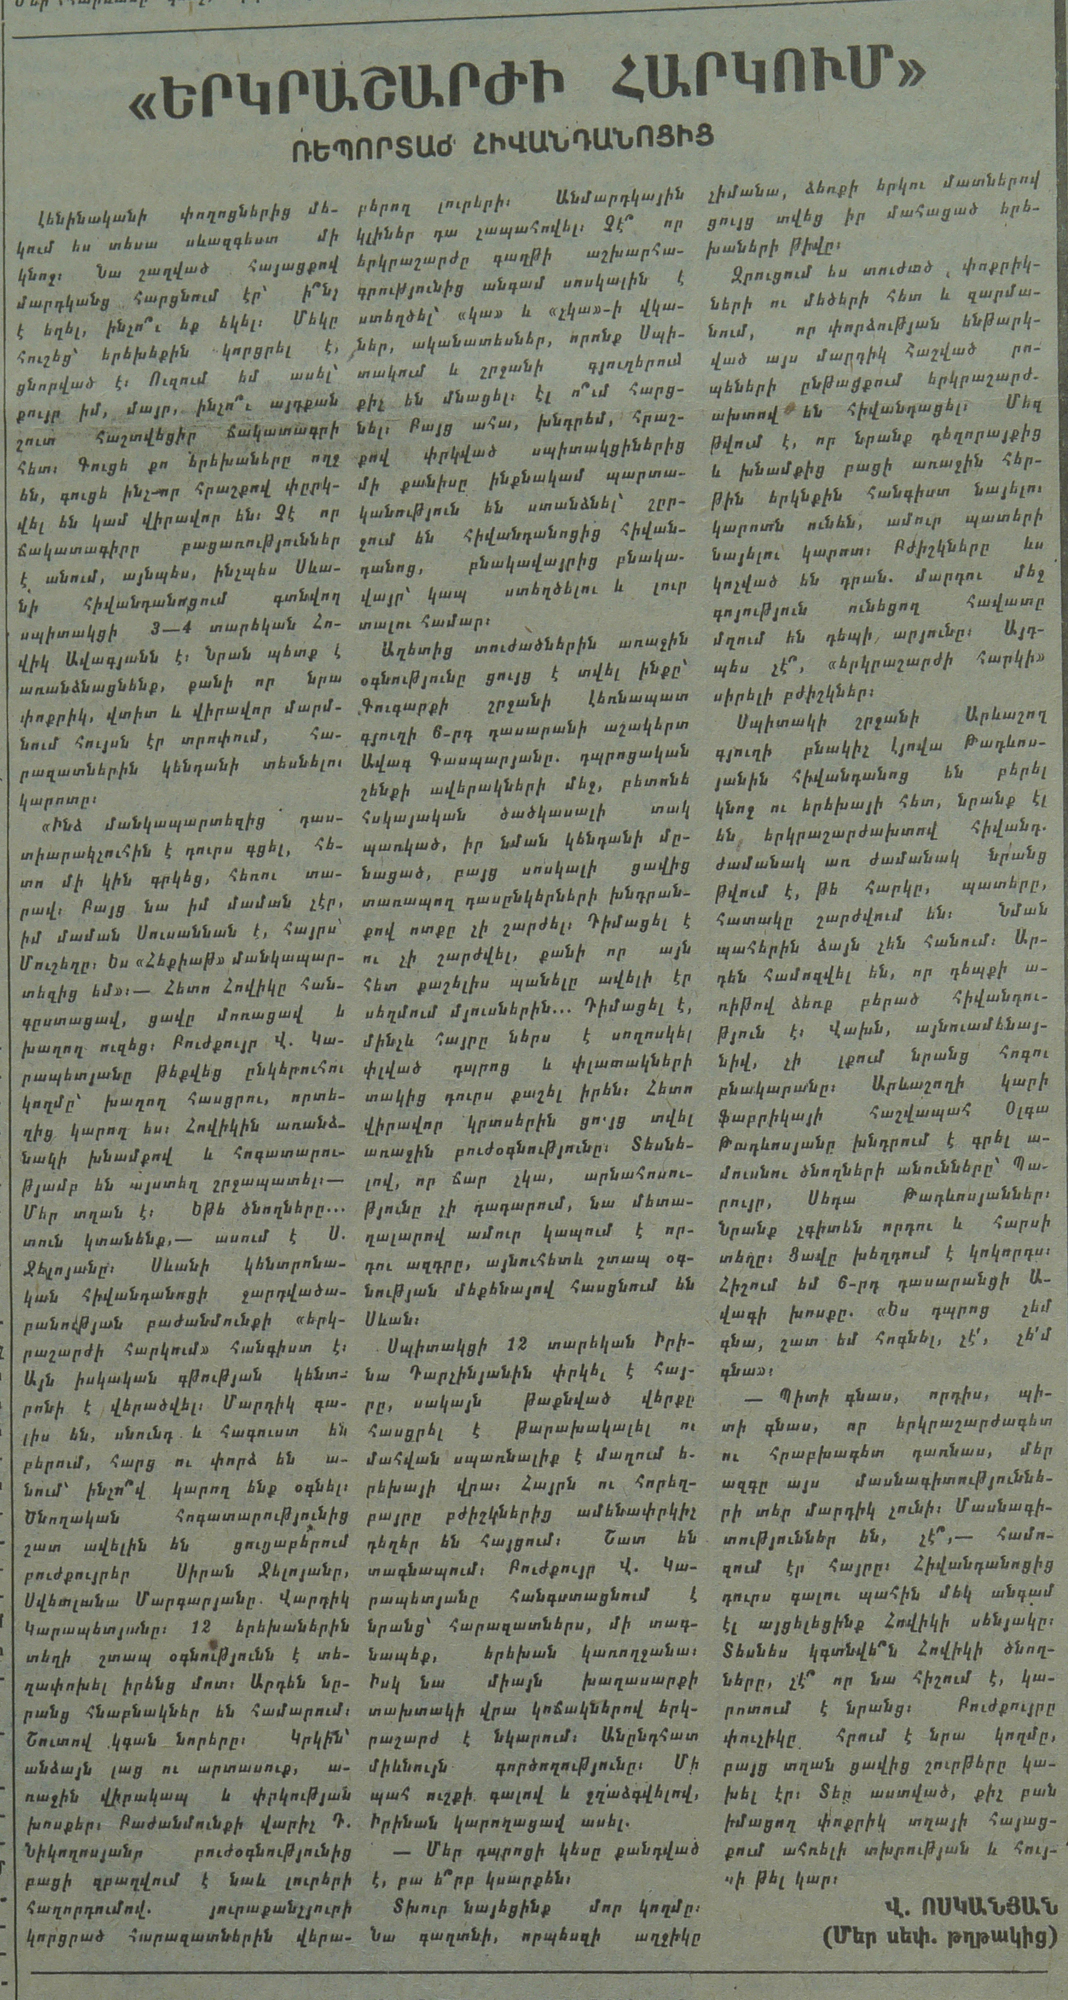 «ԵՐԿՐԱՇԱՐԺԻ ՀԱՐԿՈՒՄ»
ՌԵՊՈՐՏԱԺ ՀԻՎԱՆԴԱՆՈՑԻՑ
Լենինականի փողոցներից մե-
կում ես տեսա սևազգեստ մի
կնոջ։ Նա շաղված հայացքով
մարդկանց հարցնում էր՝ ի՞նչ
է եղել, ինչո՞ւ եք եկել։ Մեկը
հուշեց՝ երեխեքին կորցրել է,
ցնորված է։ Ուզում եմ ասել՝
քույր իմ, մայր, ինչո՞ւ այդքան
շուտ հաշտվեցիր ճակատագրի
հետ։ Գուցե քո երեխաները ողջ
են, գուցե ինչ-որ հրաշքով փըրկ-
վել են կամ վիրավոր են։ Չէ որ
ճակատագիրը բացառություններ
է անում, այնպես, ինչպես Սևա-
նի հիվանդանոցում գտնվող
սպիտակցի 3—4 տարեկան Հո-
վիկ Ավագյանն է։ Նրան պետք է
առանձնացնենք, քանի որ նրա
փոքրիկ, վտիտ և վիրավոր մարմ-
նում հույսն էր տրոփում, հա-
րազատներին կենդանի տեսնելու
կարոտը։
«Ինձ մանկապարտեզից դաս-
տիարակչուհին է դուրս գցել, հե-
տո մի կին գրկեց, հեռու տա-
րավ։ Բայց նա իմ մաման չէր,
իմ մաման Սուսաննան է, հայրս՝
Մուշեղը։ Ես «Հեքիաթ» մանկապար-
տեզից եմ»։— Հետո Հովիկը հան-
գըստացավ, ցավը մոռացավ և
խաղող ուզեց։ Բուժքույր Վ. Կա-
րապետյանը թեքվեց ընկերուհու
կողմը՝ խաղող հասցրու, որտե-
ղից կարող ես։ Հովիկին առանձ-
նակի խնամքով և հոգատարու-
թյամբ են այստեղ շրջապատել։—
Մեր տղան է։ Եթե ծնողները...
տուն կտանենք,— ասում է Ս.
Ջելոյանը։ Սևանի կենտրոնա-
կան հիվանդանոցի ջարդվածա-
բանության բաժանմունքի «երկ-
րաշարժի հարկում» հանգիստ է։
Այն իսկական գթության կենտ-
րոնի է վերածվել։ Մարդիկ գա-
լիս են, սնունդ և հագուստ են
բերում, հարց ու փորձ են ա-
նում՝ ինչո՞վ կարող ենք օգնել։
Ծնողական հոգատարությունից
շատ ավելին են ցուցաբերում
բուժքույրեր Սիրան Ջելոյանը,
Սվետլանա Մարգարյանը. Վարդիկ
Կարապետյանը։ 12 երեխաներին
տեղի շտապ օգնությունն է տե-
ղափոխել իրենց մոտ։ Արդեն նը-
րանց հնաբնակներ են համարում։
Շուտով կգան նորերը։ Կրկին՝
անձայն լաց ու արտասուք, ա-
ռաջին վիրակապ և փրկության
խոսքեր։ Բաժանմունքի վարիչ Դ.
Նիկողոսյանը բուժօգնությունից
բացի զբաղվում է նաև լուրերի
հաղորդումով. յուրաքանչյուրի
կորցրած հարազատներին վերա-
բերող լուրերի։ Անմարդկային
կլիներ դա չապահովել։ Չէ՞ որ
երկրաշարժը գաղթի աշխարհա-
գրությունից անգամ սոսկալին է
ստեղծել՝ «կա» և «չկա»-ի վկա-
ներ, ականատեսներ, որոնք Սպի-
տակում և շրջանի գյուղերում
քիչ են մնացել։ Էլ ո՞ւմ հարց-
նել։ Բայց ահա, խնդրեմ, հրաշ-
քով փրկված սպիտակցիներից
մի քանիսը ինքնակամ պարտա-
կանություն են ստանձնել՝ շըր-
ջում են հիվանդանոցից հիվան-
դանոց, բնակավայրից բնակա-
վայր՝ կապ ստեղծելու և լուր
տալու համար։
Աղետից տուժածներին առաջին
օգնությունը ցույց է տվել ինքը՝
Գուգարքի շրջանի Լեռնապատ
գյուղի 6-րդ դասարանի աշակերտ
Ավագ Գասպարյանը. դպրոցական
շենքի ավերակների մեջ, բետոնե
հսկայական ծածկասալի տակ
պառկած, իր նման կենդանի մը-
նացած, բայց սոսկալի ցավից
տառապող դասընկերների խնդրան-
քով ոտքը չի շարժել։ Դիմացել է
ու չի շարժվել, քանի որ այն
հետ քաշելիս պանելը ավելի էր
սեղմում մյուսներին... Դիմացել է,
մինչև հայրը ներս է սողոսկել
փլված դպրոց և փլատակների
տակից դուրս քաշել իրեն։ Հետո
վիրավոր կրտսերին ցույց տվել
առաջին բուժօգնությունը։ Տեսնե-
լով, որ ճար չկա, արնահոսու-
թյունը չի դադարում, նա մետա-
ղալարով ամուր կապում է որ-
դու ազդրը, այնուհետև շտապ օգ-
նության մեքենայով հասցնում են
Սևան։
Սպիտակցի 12 տարեկան Իրի-
նա Դարչինյանին փրկել է հայ-
րը, սակայն թաքնված վերքը
հասցրել է թարախակալել ու
մահվան սպառնալիք է մաղում ե-
րեխայի վրա։ Հայրն ու հորեղ-
բայրը բժիշկներից ամենափրկիչ
դեղեր են հայցում։ Շատ են
տագնապում։ Բուժքույր Վ. Կա-
րապետյանը հանգստացնում է
նրանց՝ հարազատներս, մի տագ-
նապեք, երեխան կառողջանա։
Իսկ նա միայն խաղասարքի
տախտակի վրա կոճակներով երկ-
րաշարժ է նկարում։ Անընդհատ
միևնույն գործողությունը։ Մի
պահ ուշքի գալով և ջղաձգվելով,
Իրինան կարողացավ ասել.
— Մեր դպրոցի կեսը քանդված
է, բա ե՞րբ կսարքեն։
Տխուր նայեցինք մոր կողմը։
Նա գաղտնի, որպեսզի աղջիկը
չիմանա, ձեռքի երկու մատներով
ցույց տվեց իր մահացած երե-
խաների թիվը։
Զրուցում ես տուժած փոքրիկ-
ների ու մեծերի հետ և զարմա-
նում, որ փորձության ենթարկ-
ված այս մարդիկ հաշված րո-
պեների ընթացքում երկրաշարժ-
ախտով են հիվանդացել։ Մեզ
թվում է, որ նրանք դեղորայքից
և խնամքից բացի առաջին հեր-
թին երկնքին հանգիստ նայելու
կարոտն ունեն, ամուր պատերի
նայելու կարոտ։ Բժիշկները ևս
կոչված են դրան. մարդու մեջ
գոյություն ունեցող հավատը
մղում են դեպի արյունը։ Այդ-
պես չէ՞, «երկրաշարժի հարկի»
սիրելի բժիշկներ։
Սպիտակի շրջանի Արևաշող
գյուղի բնակիչ Լյովա Թադևոս-
յանին հիվանդանոց են բերել
կնոջ ու երեխայի հետ, նրանք էլ
են երկրաշարժախտով հիվանդ.
ժամանակ առ ժամանակ նրանց
թվում է, թե հարկը, պատերը,
հատակը շարժվում են։ Նման
պահերին ձայն չեն հանում։ Ար-
դեն համոզվել են, որ դեպքի ա-
ռիթով ձեռք բերած հիվանդու-
թյուն է։ Վախն, այնուամենայ-
նիվ, չի լքում նրանց հոգու
բնակարանը։ Արևաշողի կարի
ֆաբրիկայի հաշվապահ Օլգա
Թադևոսյանը խնդրում է գրել ա-
մուսնու ծնողների անունները՝ Պա-
րույր, Սեդա Թադևոսյաններ։
Նրանք չգիտեն որդու և հարսի
տեղը։ Ցավը խեղդում է կոկորդս։
Հիշում եմ 6-րդ դասարանցի Ա-
վագի խոսքը. «Ես դպրոց չեմ
գնա, շատ եմ հոգնել, չէ՛, չե՛մ
գնա»։
— Պիտի գնաս, որդիս, պի-
տի գնաս, որ երկրաշարժագետ
ու հրաբխագետ դառնաս, մեր
ազգը այս մասնագիտություննե-
րի տեր մարդիկ չունի։ Մասնագի-
տություններ են, չէ՞,— համո-
զում էր հայրը։ Հիվանդանոցից
դուրս գալու պահին մեկ անգամ
էլ այցելեցինք Հովիկի սենյակը։
Տեսնես կգտնվե՞ն Հովիկի ծնող-
ները, չէ՞ որ նա հիշում է, կա-
րոտում է նրանց։ Բուժքույրը
փուչիկը հրում է նրա կողմը,
բայց տղան ցավից շուրթերը կա-
խել էր։ Տեր աստված, քիչ բան
իմացող փոքրիկ տղայի հայաց-
քում ահռելի տխրության և հույ-
սի թել կար։
Վ. ՈՍԿԱՆՅԱՆ
(Մեր սեփ. թղթակից)